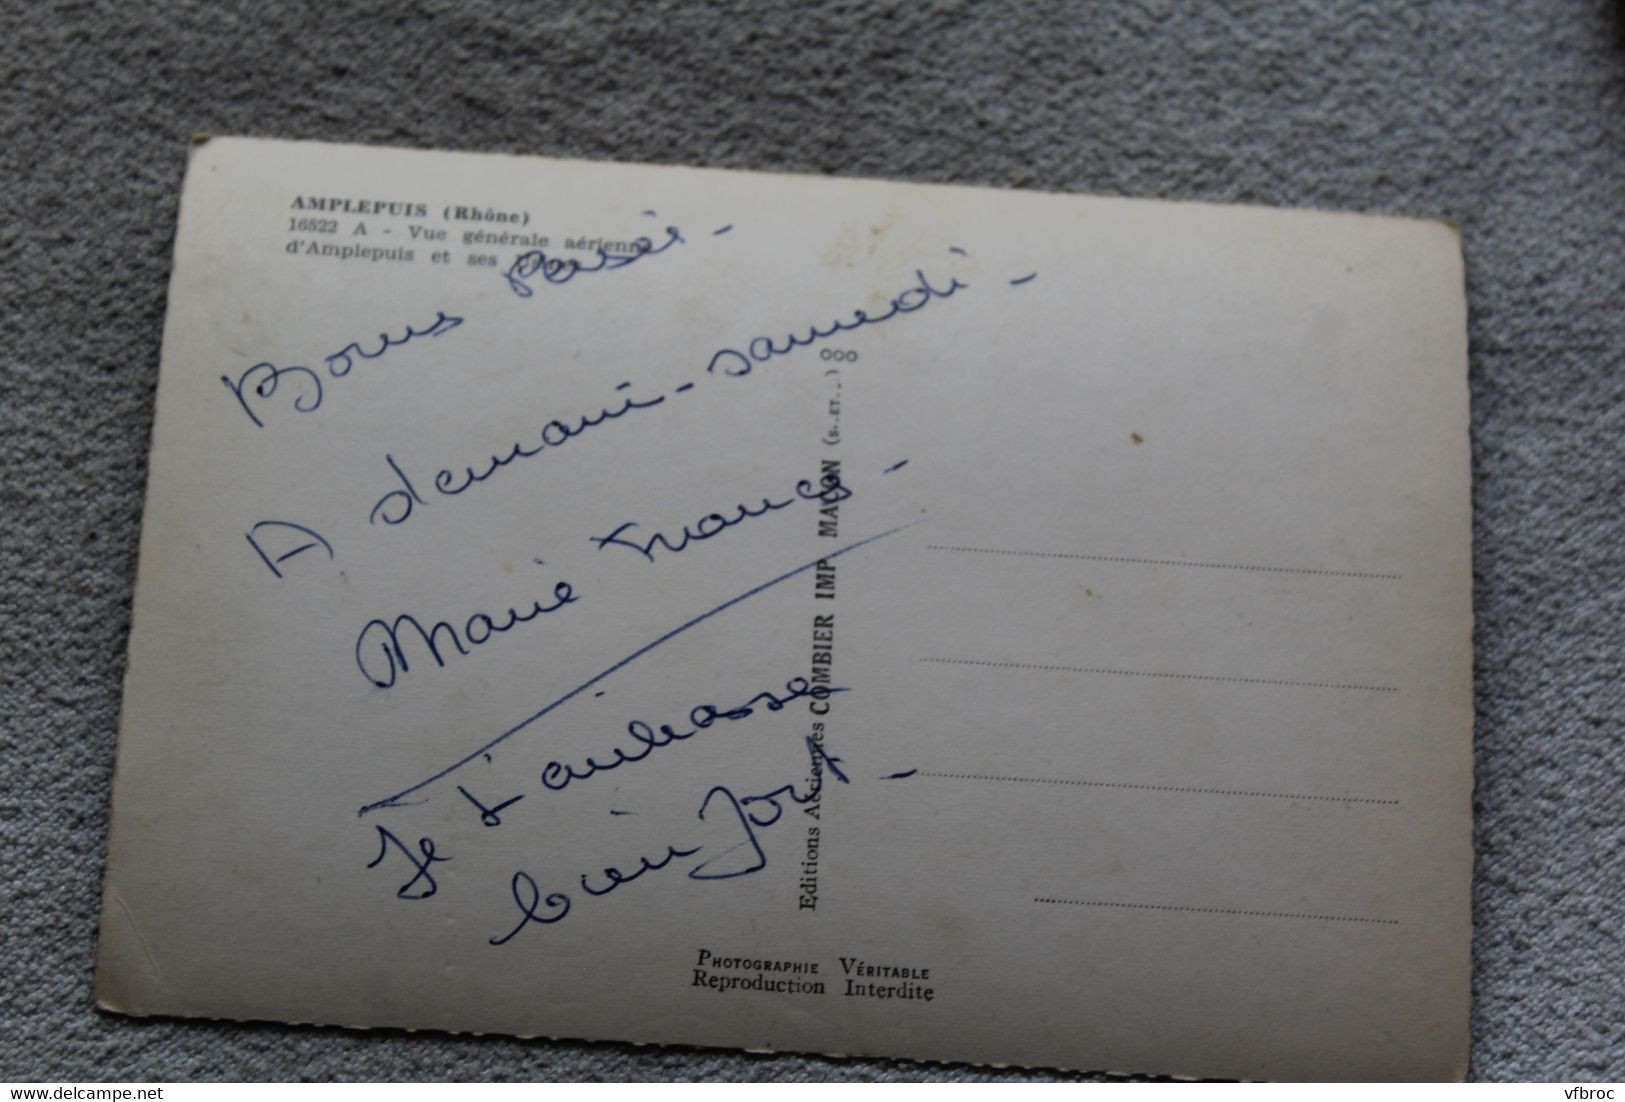 AMPLEPUIS (Rhône)
16522 A - Vue générale aérienne
d'Amplepuis et ses
Bons
A demain - samedi -
Marie France -
Je t'embrasse
bien fort -
Editions Aériennes COMBIER IMP MACON (S.-ET-..) ooo
PHOTOGRAPHIE VÉRITABLE
Reproduction Interdite
vfbroc
delcampe.net